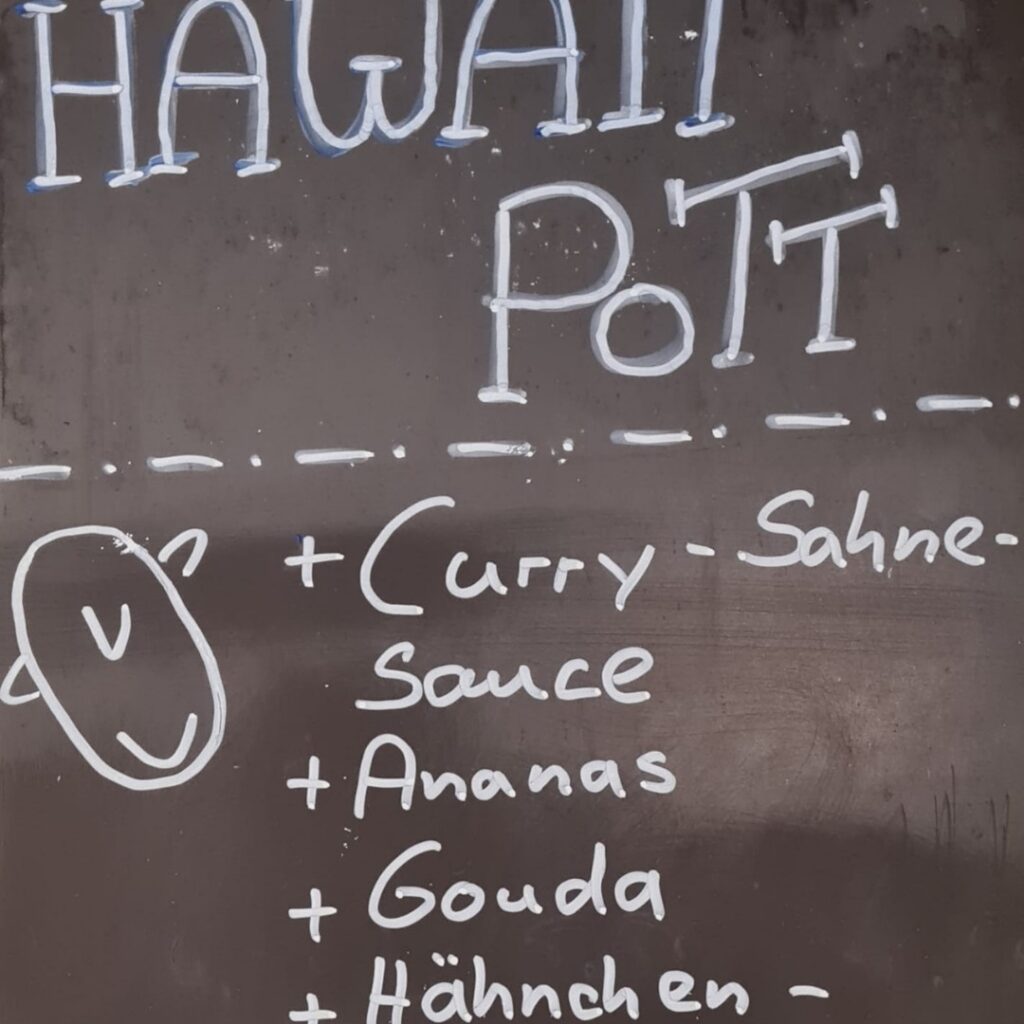 HAWAII
POTT
+ Curry - Sahne -
Sauce
+ Ananas
+ Gouda
+ Hähnchen -